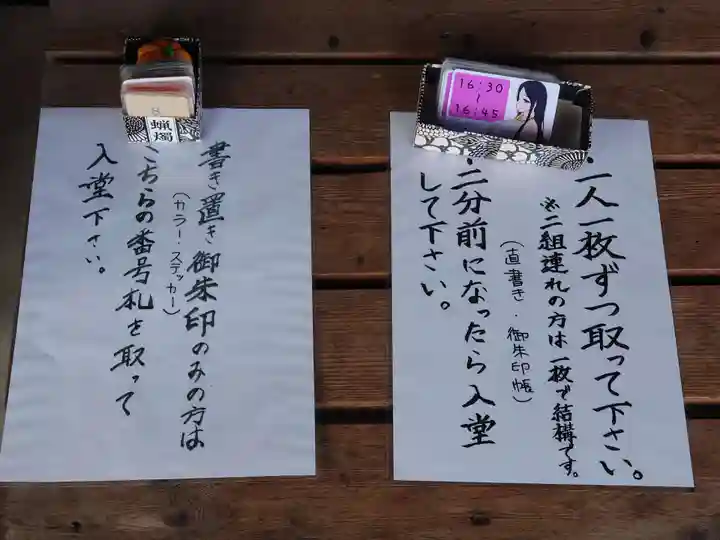 16:30
〜
16:45
・一人一枚ずつ取って下さい。
※二組連れの方は一枚で結構です。
(直書き・御朱印帳)
・二分前になったら入堂
して下さい。
8
蝋燭
書き置き御朱印のみの方は
(カラー・ステッカー)
こちらの番号札を取って
入堂下さい。